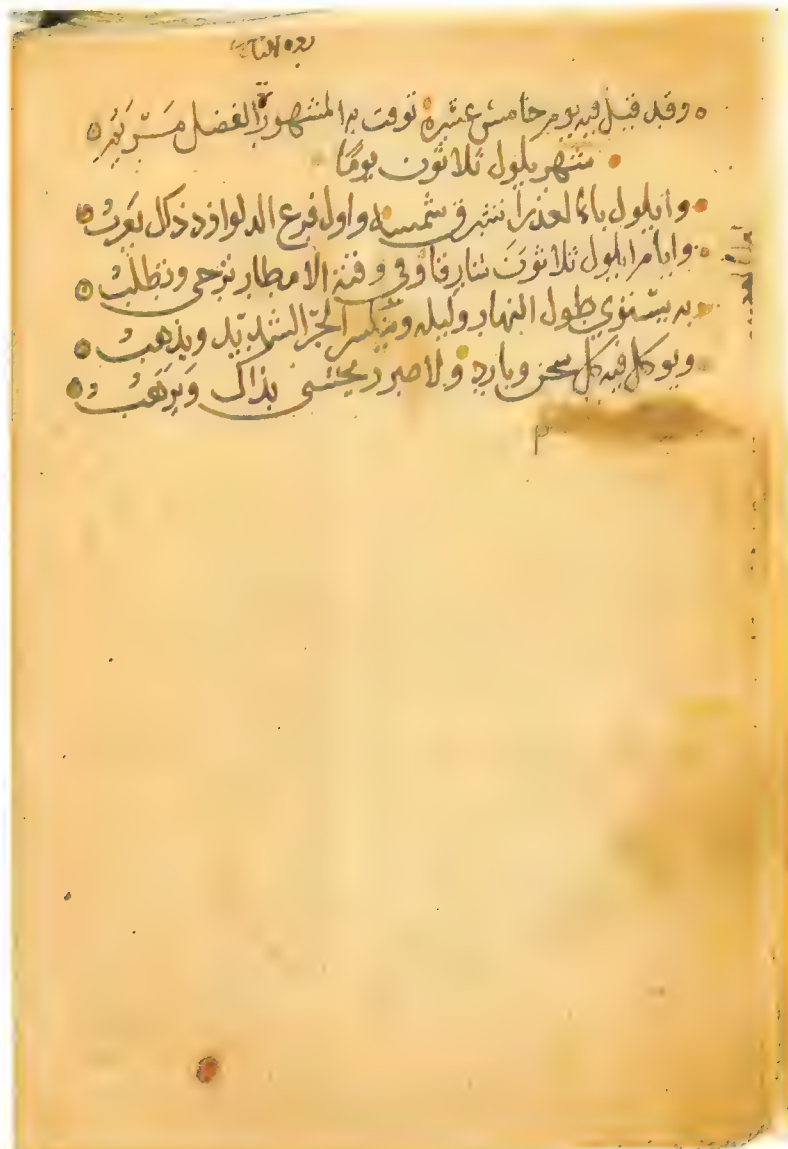 وقد قيل فيه يوم خامس عشره توفت به المشهورة الفضل مريم
شهر يلول ثلاثون يوما
وايلول بالعذرا تشرق شمسه واول فرع الدلو اذ ذاك يغرب
وايام ايلول ثلاثون وفي وقته الامطار ترجى وتطلب
به يستوي طول النهار وليله وينكسر الحر الشديد ويذهب
ويوكل فيه كل سخن وبارد ولا ضرر يختشى بذاك ويرهب